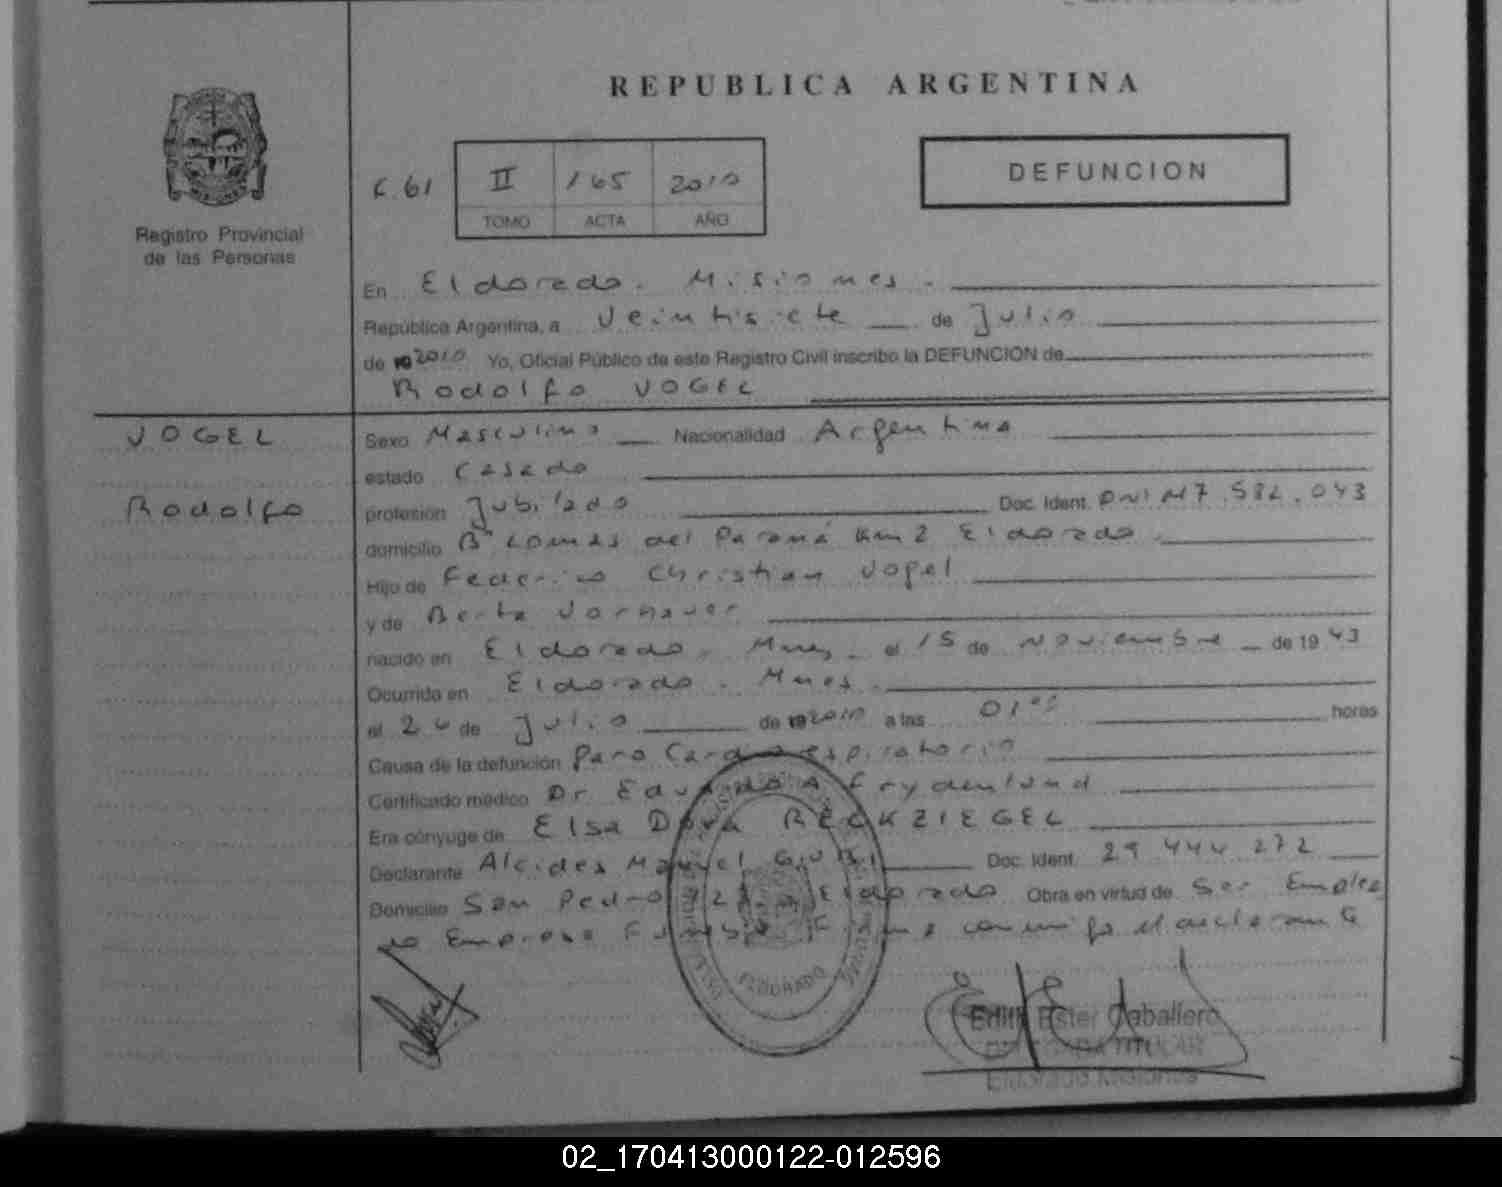 REPUBLICA ARGENTINA
Registro Provincial
de las Personas
F. 61 II 165 2010
TOMO ACTA AÑO
DEFUNCION
En Eldorado. Misiones.
República Argentina, a Veintisiete de Julio
de 19 2010 Yo, Oficial Público de este Registro Civil inscribo la DEFUNCION de
Rodolfo VOGEL
VOGEL
Rodolfo
Sexo Masculino Nacionalidad Argentina
estado Casado
profesión Jubilado Doc. Ident. DNI M7.582.043
domicilio B° Lomas del Paraná Km 2 Eldorado
Hijo de Federico Christian Vogel
y de Berta
nacido en Eldorado. Mnes el 15 de Noviembre de 19 43
Ocurrida en Eldorado. Mnes.
el 26 de Julio de 19 2010 a las 01 horas
Causa de la defunción Paro Cardiorespiratorio
Certificado médico Dr Eduardo A Frydenlund
Era cónyuge de Elsa Dora RECKZIEGEL
Declarante Alcides Manuel Doc. Ident. 29 444 272
Domicilio San Pedro Eldorado Obra en virtud de Ser Emplea
do Empresa conmigo el declarante
ELDORADO
Edith Ester Caballero
DELEGADA TITULAR
Eldorado Misiones
02_170413000122-012596